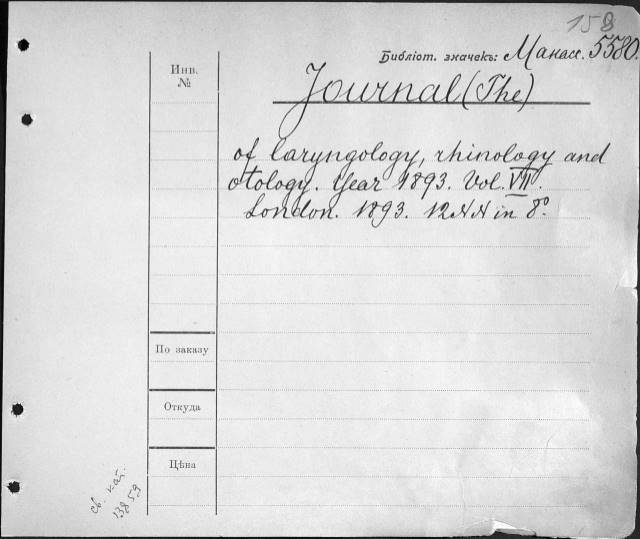 158
Библіот. значекъ: Манасс. 5580.
Инв.
№
Journal (The)
of laryngology, rhinology and
otology. Year 1893. Vol. VII.
London. 1893. 12 NN in 8°.
По заказу
Откуда
Цѣна
св. кат.
13859